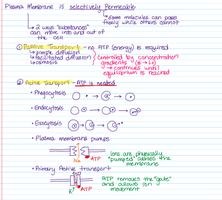 Plasma Membrane is selectively Permeable
"some molecules can pass
freely while others cannot
→ 2 ways "substances"
can move into and out of
the cell
① Passive Transport - no ATP (energy) is required
→ simple diffusion
→ facilitated diffusion
→ osmosis
Controlled by concentration
gradients
→ continues until
equilibrium is reached
② Active Transport - ATP is needed
• Phagocytosis
• Endocytosis
• Exocytosis
• Plasma membrane pumps
ATP
Ions are physically
"pumped" across the
membrane
• Primary Active transport
ATP
ATP removes the "gate"
and allows ion
movement